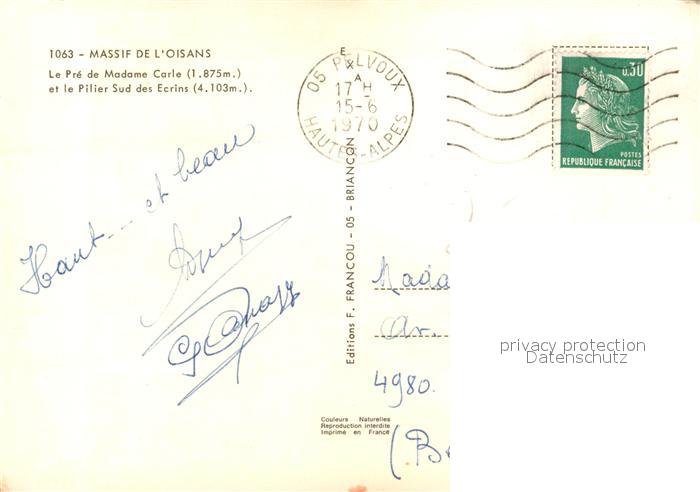 1063 - MASSIF DE L'OISANS
Le Pré de Madame Carle (1.875m.)
et le Pilier Sud des Ecrins (4.103m.).
05 PELVOUX
17 H
15-6
1970
HAUTES-ALPES
0,30
POSTES
REPUBLIQUE FRANÇAISE
Haut... et beau
Editions F. FRANCOU - 05 - BRIANCON
Mada
Av.
4980.
(Be
privacy protection
Datenschutz
Couleurs Naturelles
Reproduction interdite
Imprimé en France